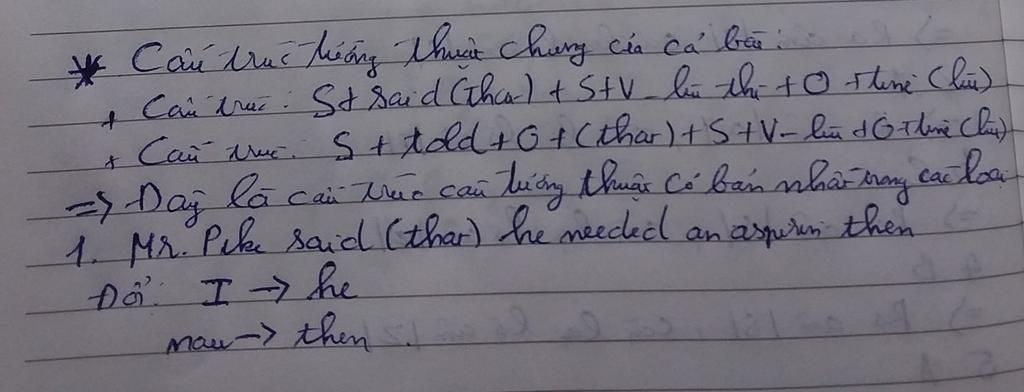 * Cấu trúc tường thuật chung của cả bài:
+ Cấu trúc: S + said (that) + S + V - lùi thì + O + time (lùi)
+ Cấu trúc: S + told + O + (that) + S + V - lùi + O + time (lùi)
=> Đây là cấu trúc câu tường thuật cơ bản nhất trong các loại
1. Mr. Pike said (that) he needed an aspirin then
Đổi: I -> he
now -> then.